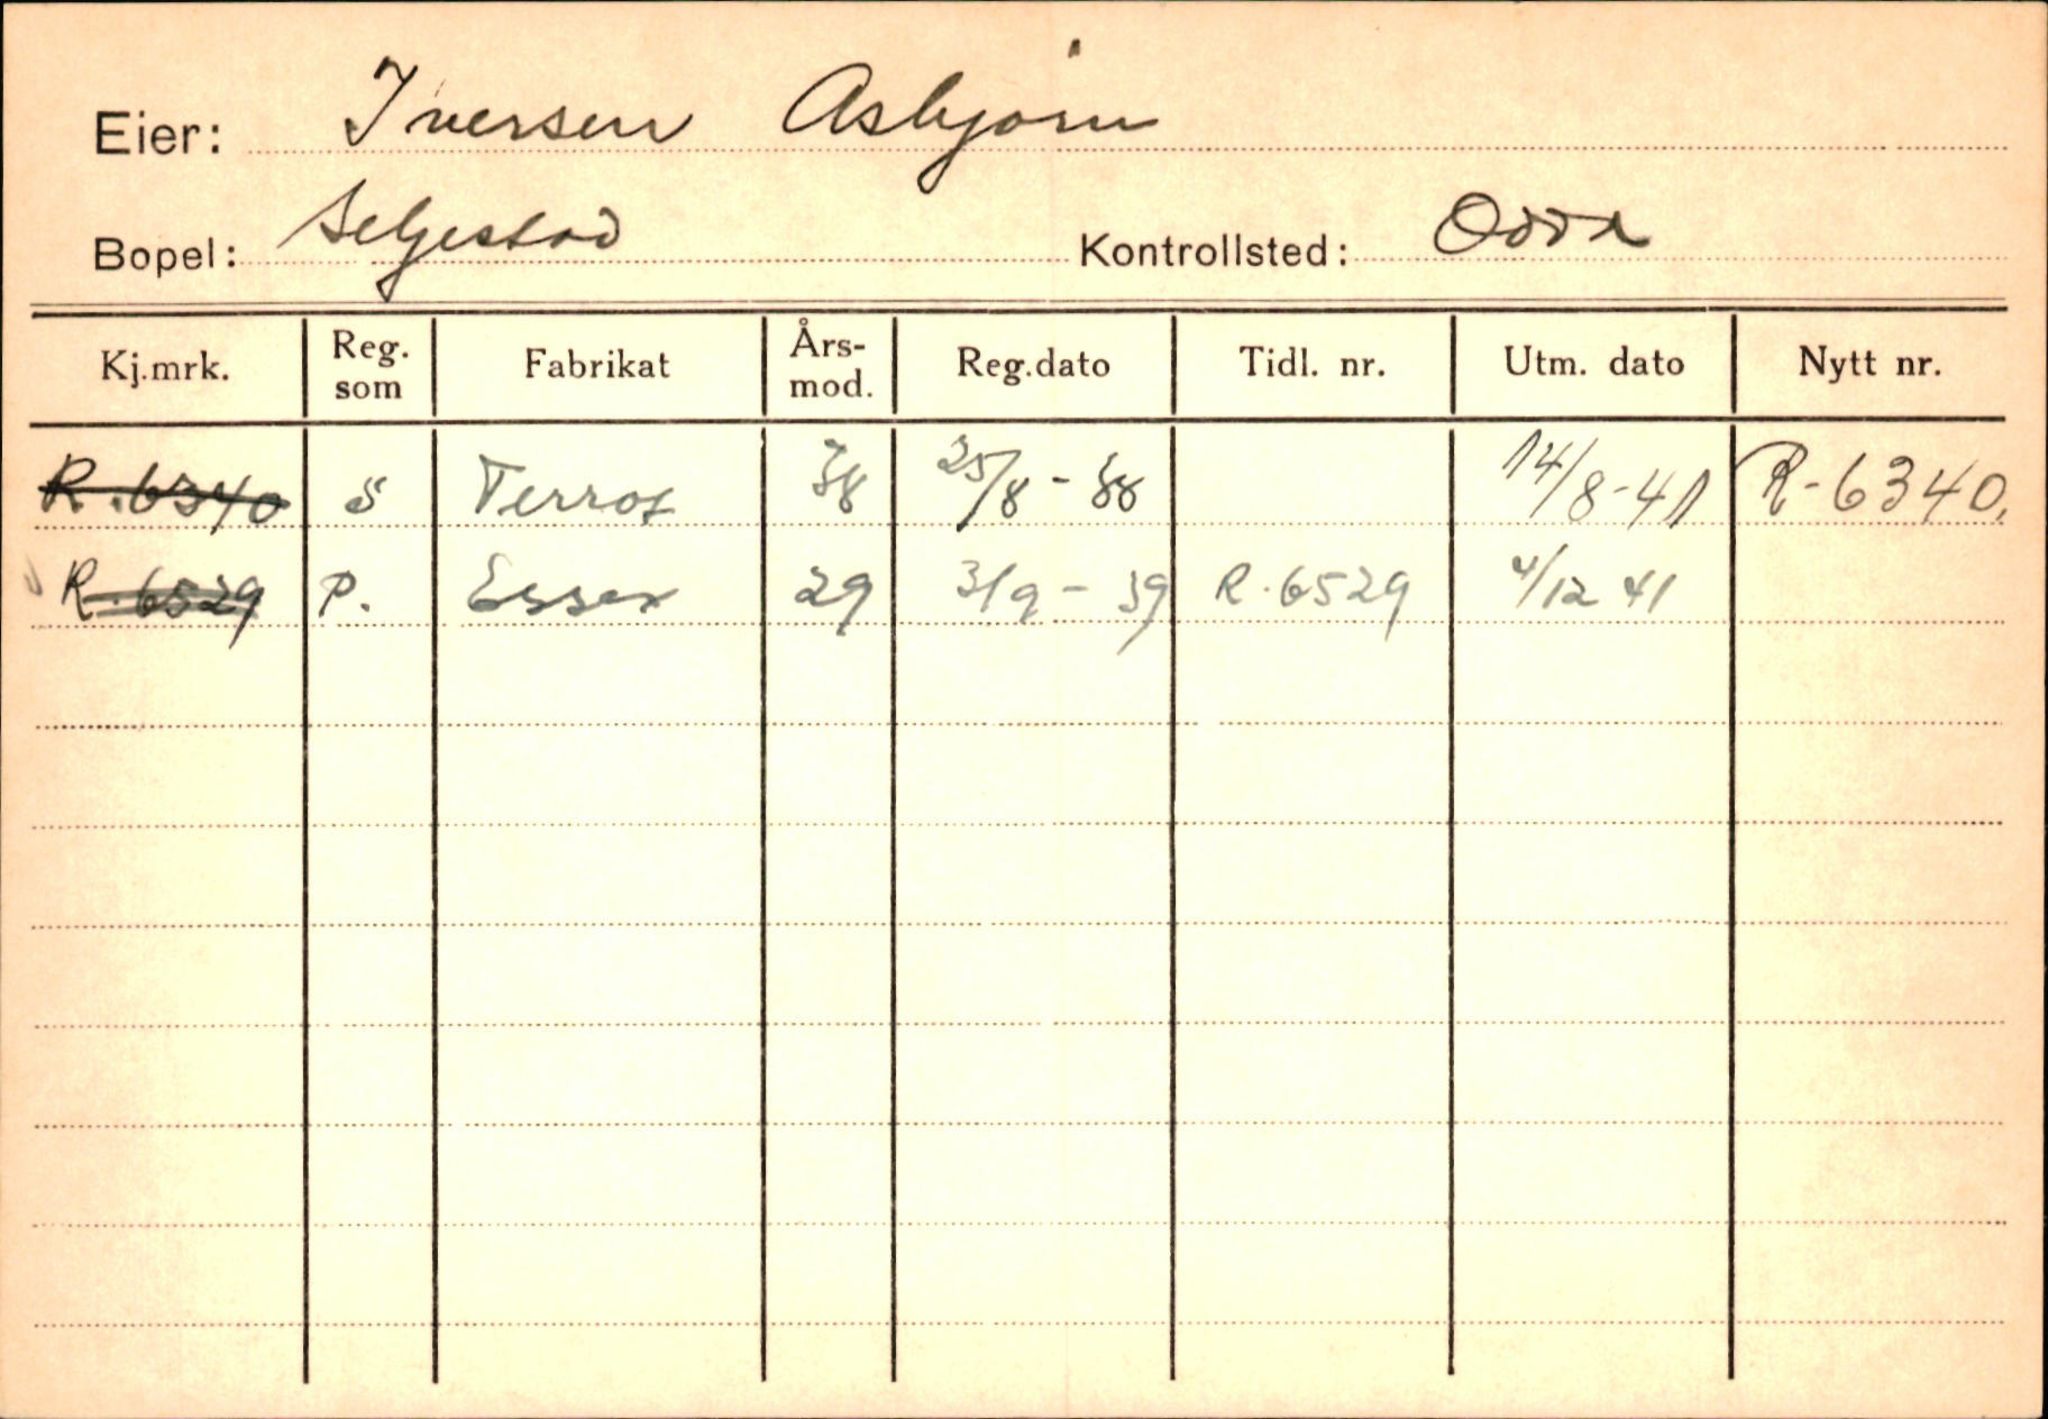 Eier: Iversen Asbjørn
Bopel: Seljestad Kontrollsted: Odda
Kj.mrk. Reg. som Fabrikat Års-mod. Reg.dato Tidl. nr. Utm. dato Nytt nr.
R.6340 S Terrot 38 25/8-38 14/8-41 R-6340.
R.6529 P. Essex 29 3/9-39 R.6529 4/12 41